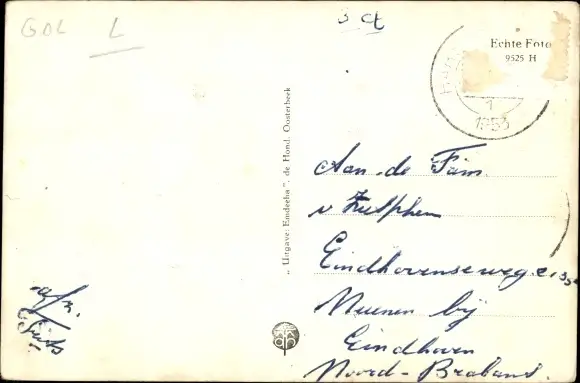 GOL L
3 ct
Echte Foto
9525 H
1
1953
„Uitgave: Emdeeha", de Hond, Oosterbeek
Aan de Fam.
v Zutphen
Eindhovenseweg
Nuenen bij
Eindhoven
Noord-Brabant.
afz.